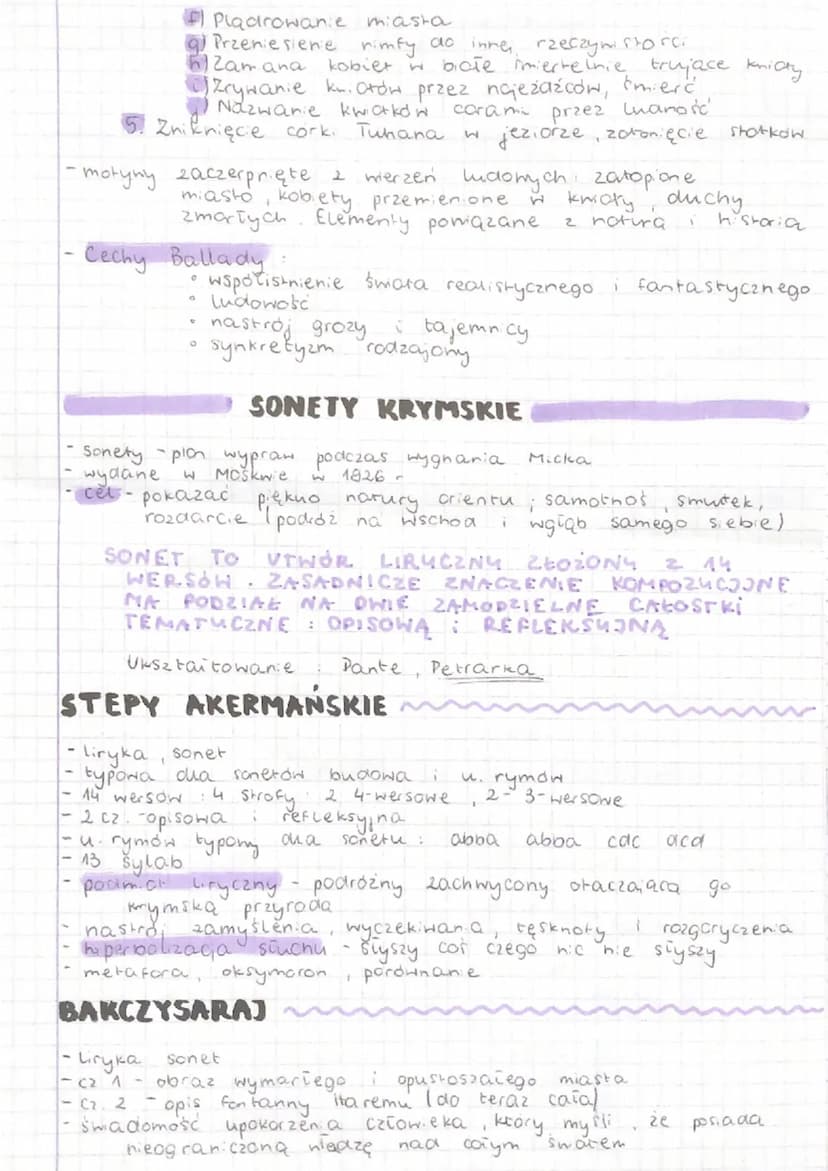 f) Plądrowanie miasta
g) Przeniesienie nimfy do innej rzeczywistości
h) Zamiana kobiet w białe śmiertelnie trujące kwiaty
i) Zrywanie kwiatów przez najeźdźców, śmierć
j) Nazwanie kwiatków carami przez ludność
5. Zniknięcie córki Tuhana w jeziorze, zatonięcie statków
- motywy zaczerpnięte z wierzeń ludowych: zatopione
miasto, kobiety przemienione w kwiaty, duchy
zmarłych. Elementy powiązane z naturą i historią
- Cechy Ballady:
• współistnienie świata realistycznego i fantastycznego
• ludowość
• nastrój grozy i tajemnicy
• synkretyzm rodzajowy
SONETY KRYMSKIE
- sonety - plon wypraw podczas wygnania Micka
- wydane w Moskwie w 1826 r
- cel - pokazać piękno natury orientu; samotnoś, smutek,
rozdarcie (podróż na wschód i wgłąb samego siebie)
SONET TO UTWÓR LIRYCZNY ZŁOŻONY Z 14
WERSÓW. ZASADNICZE ZNACZENIE KOMPOZYCYJNE
MA PODZIAŁ NA DWIE ZAMODZIELNE CAŁOSTKI
TEMATYCZNE: OPISOWĄ i REFLEKSYJNĄ
Ukształtowanie: Dante, Petrarka
STEPY AKERMAŃSKIE
- liryka, sonet
- typowa dla sonetów budowa i u. rymów
- 14 wersów: 4 strofy: 2 4-wersowe, 2 - 3-wersowe
- 2 cz. - opisowa i refleksyjna
- u. rymów typowy dla sonetu: abba abba cdc dcd
- 13 sylab
- podmiot liryczny - podróżny zachwycony otaczającą go
krymską przyrodą
- nastrój zamyślenia, wyczekiwania, tęsknoty i rozgoryczenia
- hiperbolizacja słuchu - słyszy coś czego nic nie słyszy
- metafora, oksymoron, porównanie
BAKCZYSARAJ
- liryka sonet
- cz 1 - obraz wymarłego i opustoszałego miasta
- cz. 2 - opis fontanny Haremu (do teraz cała)
- świadomość upokorzenia człowieka, który myśli, że posiada
nieograniczoną władzę nad całym światem